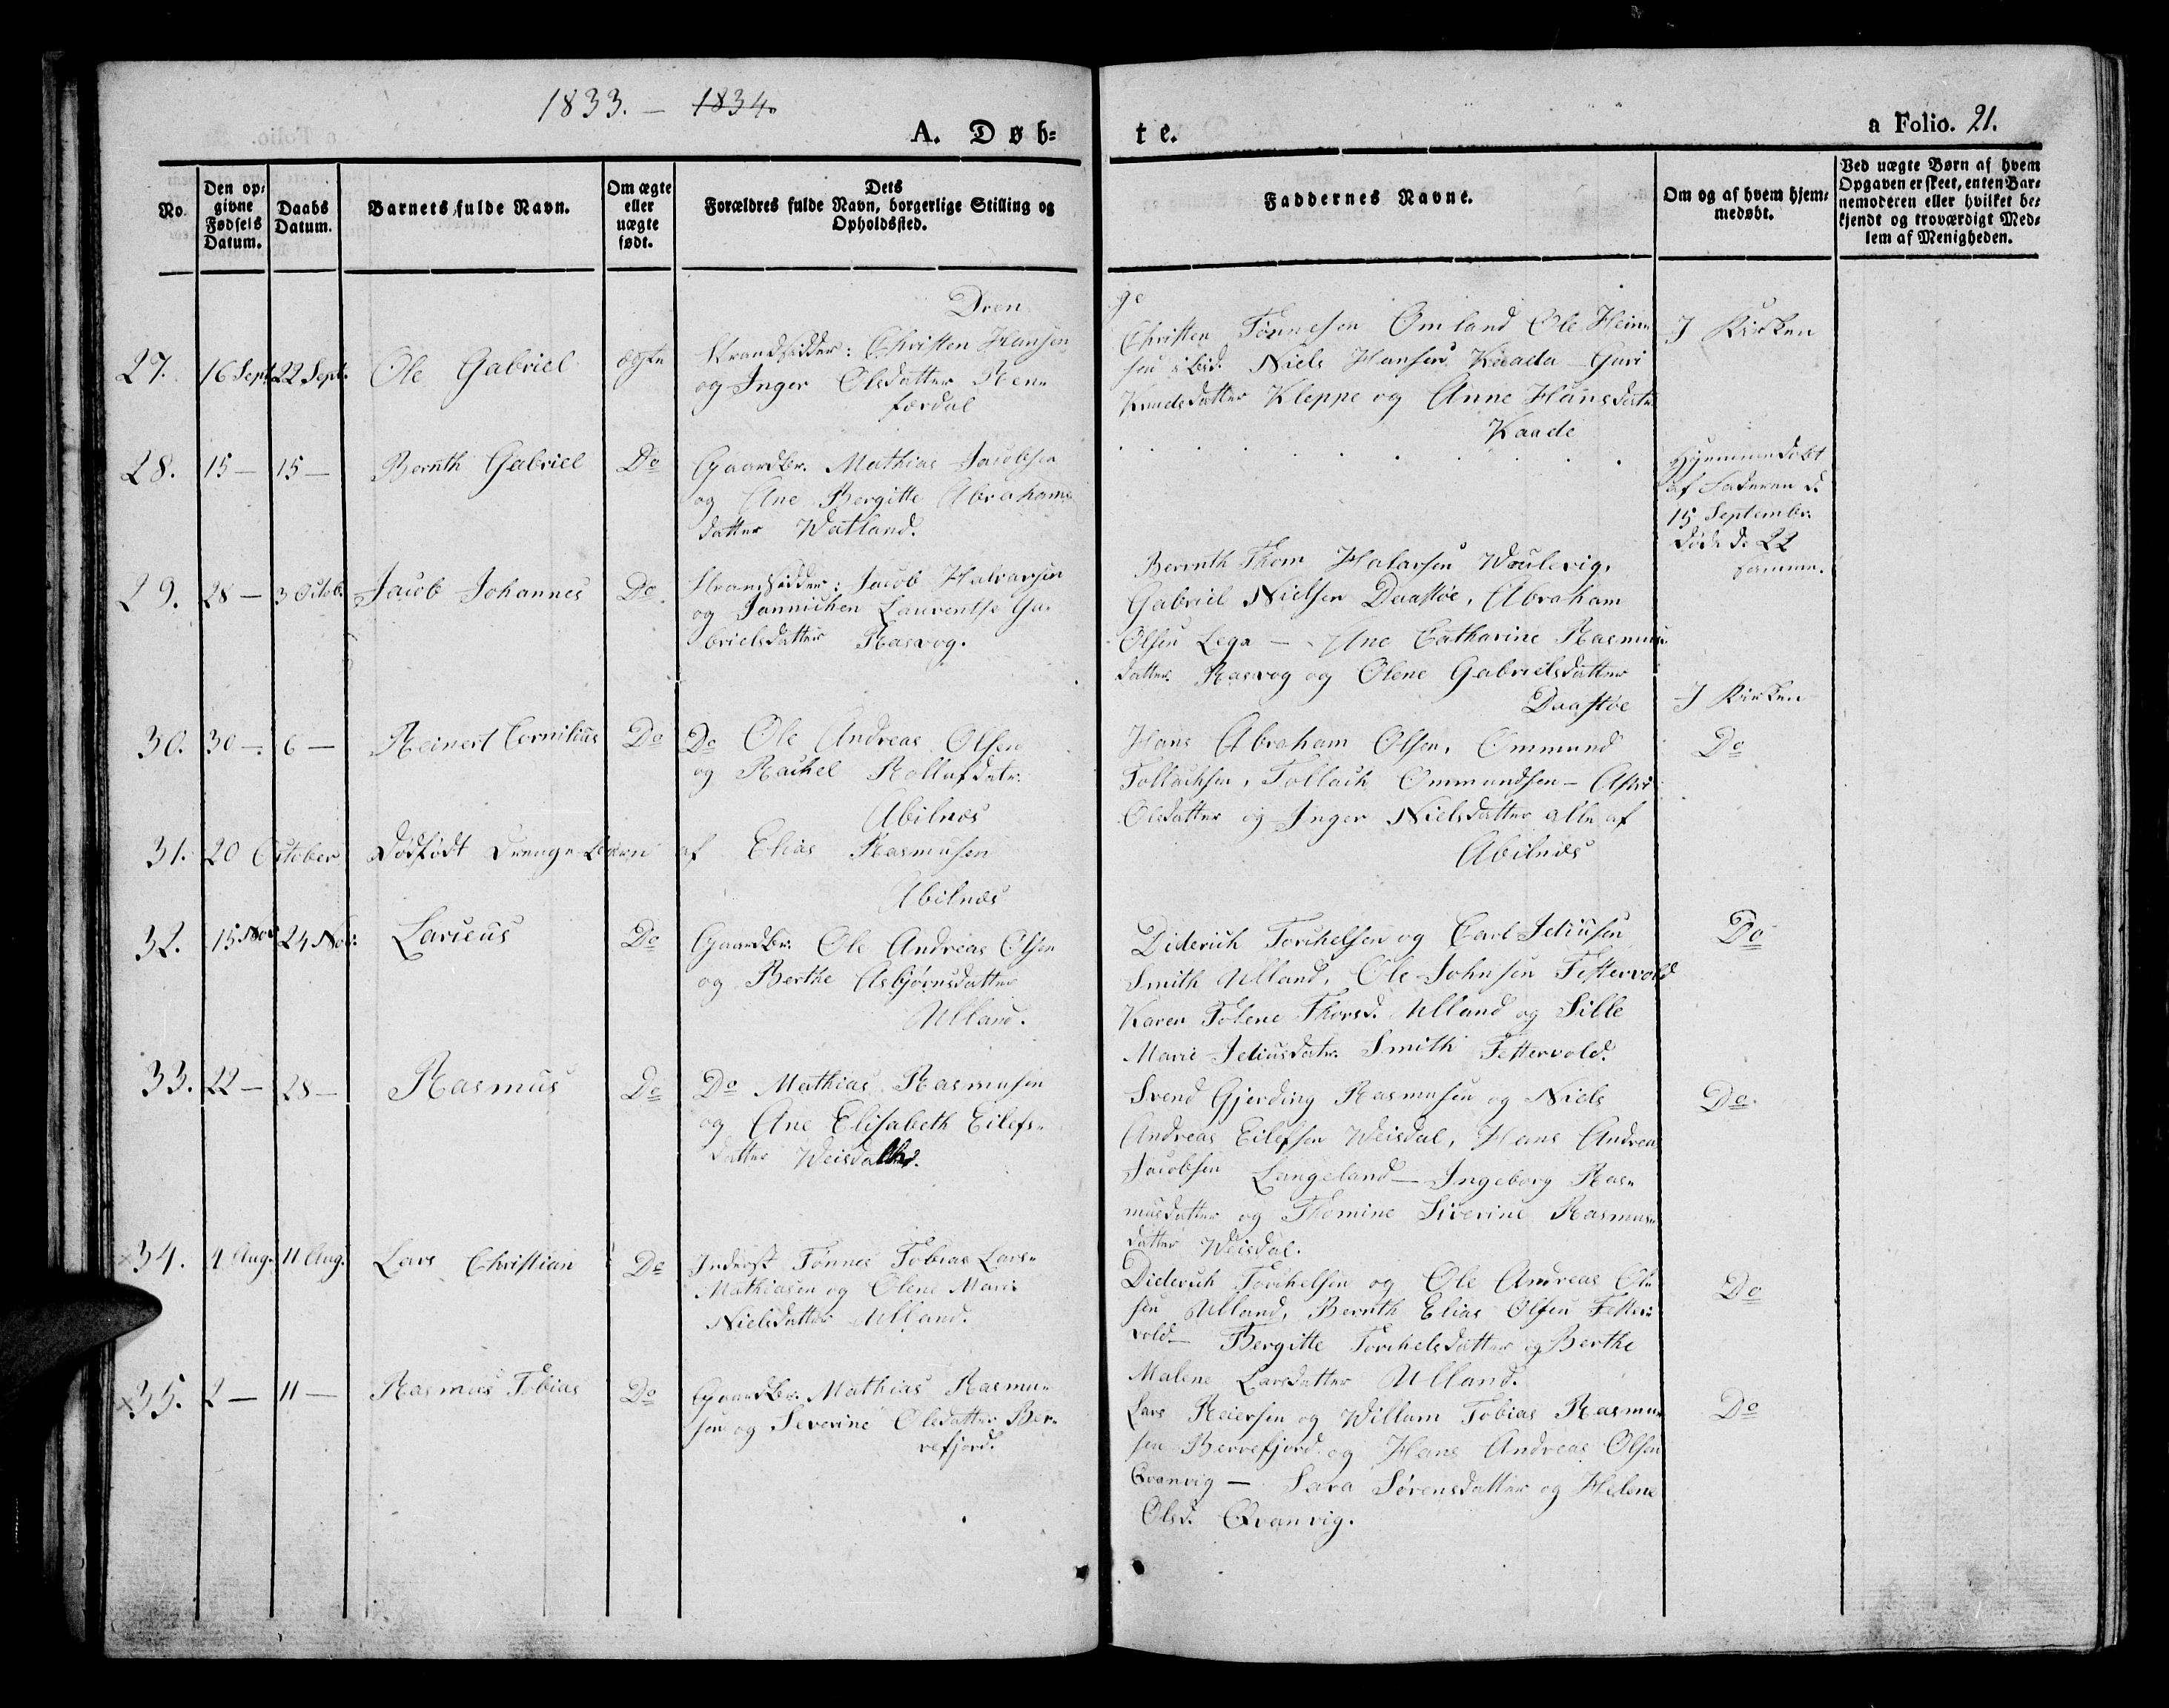 1833. — 1834.
A. Døb=
te.
a Folio. 21.
No.
Den op=
givne
Fødsels
Datum.
Daabs
Datum.
Barnets fulde Navn.
Om ægte
eller
uægte
født.
Dets
Forældres fulde Navn, borgerlige Stilling og
Opholdssted.
Faddernes Navne.
Om og af hvem hjem=
medøbt.
Ved uægte Børn af hvem
Opgaven er skeet, enten Bar=
nemoderen eller hvilket be=
kjendt og troværdigt Med=
lem af Menigheden.
Dren
ge
27. 16 Sept. 22 Sept. Ole Gabriel ægte
Strandsidder: Christen Hansen
og Inger Olsdatter Ren=
færdal
Christen Tønnesen Omland Ole Hein=
sen ibid. Niels Hansen Kaade — Guri
Knudsdatter Kleppe og Anne Hansdatr
Kaade
I Kirken
28. 15 — 15 — Bernth Gabriel Do
Gaardbr. Mathias Jacobsen
og Ane Bergitte Abrahams
datter Watland.
Hjemmedøbt
af Faderen d.
15 Septembr.
døde d. 22
samme.
29. 28 — 3 Octob. Jacob Johannes Do.
Strandsidder: Jacob Halvorsen
og Jannichen Laurentse Ga=
brielsdatter Rasvog.
Bernth Thom Halvorsen
Gabriel Nielsen Daastøe, Abraham
Olsen Lega — Ane Catharine Rasmus=
datter Rasvog og Olene Gabrielsdatter
Daastøe
I Kirken
30. 30 —. 6 — Reinert Cornilius Do
Do Ole Andreas Olsen
og Rachel Rollufsdatr.
Abilnæs
Hans Abraham Olsen, Ommund
Tollachsen, Tollach Ommundsen —
Olsdatter og Inger Nielsdatter alle af
Abilnæs
Do
31. 20 October Dødfødt Drenge Barn af Elias Rasmusen
Abilnæs
32. 15 Nov. 24 Nov: Larieus Do
Gaardbr. Ole Andreas Olsen
og Berthe Asbjørnsdatter
Ulland.
Diderich Torchelsen og Carl Jeliusen
Smith Ulland, Ole Johnsen Festervold
Karen Tolene Thorsd. Ulland og Sille
Marie Jeliusdatr. Smith Festervold.
Do
33. 22 — 28 — Rasmus Do
Do Mathias Rasmusen
og Ane Elisabeth Eilefs=
datter
Svend Gjerding Rasmusen og Niels
Andreas Eilefsen Weisdal, Hans Andrea
Jacobsen Langeland — Ingeborg Ras=
musdatter og Thomine Siverine Rasmus=
datter Weisdal.
Do.
×34. 4 Aug. 11 Aug. Lars Christian Do
Inderst Tønnes Tobias Lars=
Mathiasen og Olene Marie
Nielsdatter Ulland.
Diderich Torchelsen og Ole Andreas Ol=
sen Ulland, Bernth Elias Olsen Fester=
vold — Bergitte Torchelsdatter og Berthe
Malene Larsdatter Ulland.
Do
×35. 2 — 11 — Rasmus Tobias Do
Gaardbr. Mathias Rasmu=
sen og Severine Olsdatter Ber=
refjord.
Lars Reiersen og Willum Tobias Rasmu=
sen Berrefjord og Hans Andreas Olsen
Qvanvig — Sara Sørensdatter og Helene
Olsd. Qvanvig.
Do